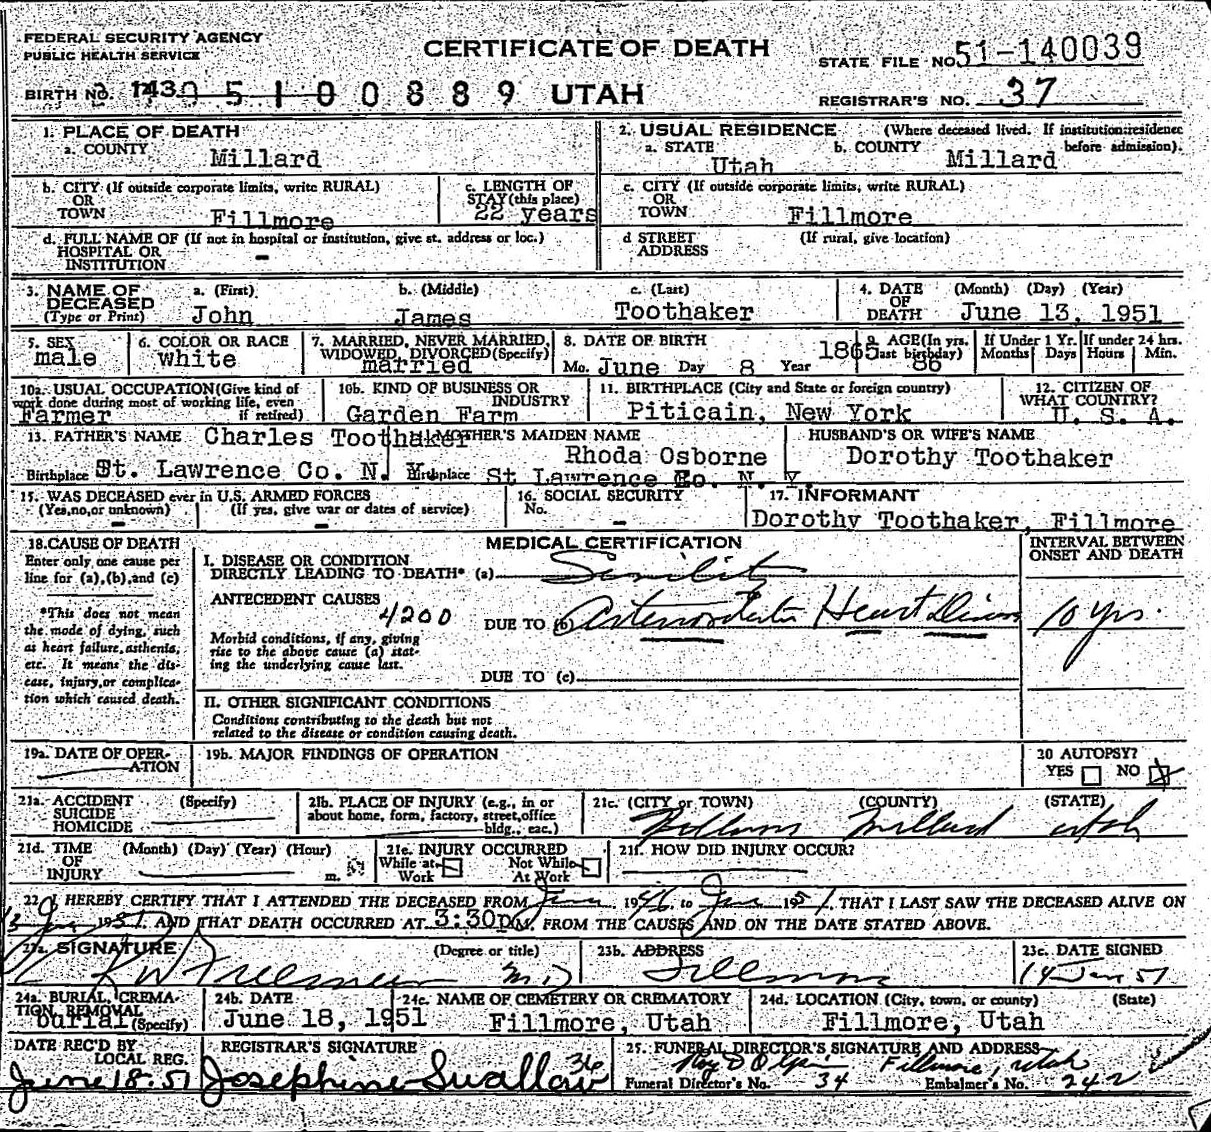 FEDERAL SECURITY AGENCY
PUBLIC HEALTH SERVICE
CERTIFICATE OF DEATH
STATE FILE NO. 51-140039
BIRTH NO. 5100889 UTAH
REGISTRAR'S NO. 37
1. PLACE OF DEATH
a. COUNTY Millard
2. USUAL RESIDENCE (Where deceased lived. If institution: residence before admission).
a. STATE Utah b. COUNTY Millard
b. CITY (If outside corporate limits, write RURAL)
OR
TOWN Fillmore
c. LENGTH OF
STAY (this place)
22 years
c. CITY (If outside corporate limits, write RURAL)
OR
TOWN Fillmore
d. FULL NAME OF (If not in hospital or institution, give st. address or loc.)
HOSPITAL OR
INSTITUTION -
d STREET (If rural, give location)
ADDRESS
3. NAME OF DECEASED (Type or Print)
a. (First) b. (Middle) c. (Last)
John James Toothaker
4. DATE OF DEATH (Month) (Day) (Year)
June 13, 1951
5. SEX
male
6. COLOR OR RACE
white
7. MARRIED, NEVER MARRIED,
WIDOWED, DIVORCED (Specify)
married
8. DATE OF BIRTH
Mo. June Day 8 Year 1865
9. AGE (In yrs. last birthday)
86
If Under 1 Yr. Months Days
If under 24 hrs. Hours Min.
10a. USUAL OCCUPATION (Give kind of
work done during most of working life, even
if retired)
Farmer
10b. KIND OF BUSINESS OR
INDUSTRY
Garden Farm
11. BIRTHPLACE (City and State or foreign country)
Piticain, New York
12. CITIZEN OF
WHAT COUNTRY?
U. S. A.
13. FATHER'S NAME Charles Toothaker
Birthplace St. Lawrence Co. N. Y.
MOTHER'S MAIDEN NAME
Rhoda Osborne
Birthplace St Lawrence Co. N. Y.
HUSBAND'S OR WIFE'S NAME
Dorothy Toothaker
15. WAS DECEASED ever in U.S. ARMED FORCES
(Yes, no, or unknown) (If yes, give war or dates of service)
- -
16. SOCIAL SECURITY
No. -
17. INFORMANT
Dorothy Toothaker, Fillmore
18. CAUSE OF DEATH
Enter only one cause per
line for (a), (b), and (c)
*This does not mean
the mode of dying, such
as heart failure, asthenia,
etc. It means the dis-
ease, injury, or complica-
tion which caused death.
MEDICAL CERTIFICATION
INTERVAL BETWEEN
ONSET AND DEATH
I. DISEASE OR CONDITION
DIRECTLY LEADING TO DEATH* (a) Senility
ANTECEDENT CAUSES
4200
DUE TO (b) Heart Disease 10 yrs.
Morbid conditions, if any, giving
rise to the above cause (a) stat-
ing the underlying cause last.
DUE TO (c)
II. OTHER SIGNIFICANT CONDITIONS
Conditions contributing to the death but not
related to the disease or condition causing death.
19a. DATE OF OPER-
ATION
19b. MAJOR FINDINGS OF OPERATION
20 AUTOPSY?
YES NO
21a. ACCIDENT (Specify)
SUICIDE
HOMICIDE
21b. PLACE OF INJURY (e.g., in or
about home, form, factory, street, office
bldg., eac.)
21c. (CITY or TOWN) (COUNTY) (STATE)
Fillmore Millard Utah
21d. TIME (Month) (Day) (Year) (Hour)
OF
INJURY m.
21e. INJURY OCCURRED
While at Work Not While At Work
21f. HOW DID INJURY OCCUR?
22. I HEREBY CERTIFY THAT I ATTENDED THE DECEASED FROM June 1946 to June 1951. THAT I LAST SAW THE DECEASED ALIVE ON
13 June 1951. AND THAT DEATH OCCURRED AT 3:30p M. FROM THE CAUSES AND ON THE DATE STATED ABOVE.
23a. SIGNATURE (Degree or title)
Freeman M.D
23b. ADDRESS
Fillmore
23c. DATE SIGNED
14 June 51
24a. BURIAL, CREMA-
TION, REMOVAL
burial (Specify)
24b. DATE
June 18, 1951
24c. NAME OF CEMETERY OR CREMATORY
Fillmore, Utah
24d. LOCATION (City, town, or county) (State)
Fillmore, Utah
DATE REC'D BY
LOCAL REG.
June 18-51
REGISTRAR'S SIGNATURE 36
Josephine Swallow
25. FUNERAL DIRECTOR'S SIGNATURE AND ADDRESS
Fillmore, Utah
Funeral Director's No. 34 Embalmer's No. 242